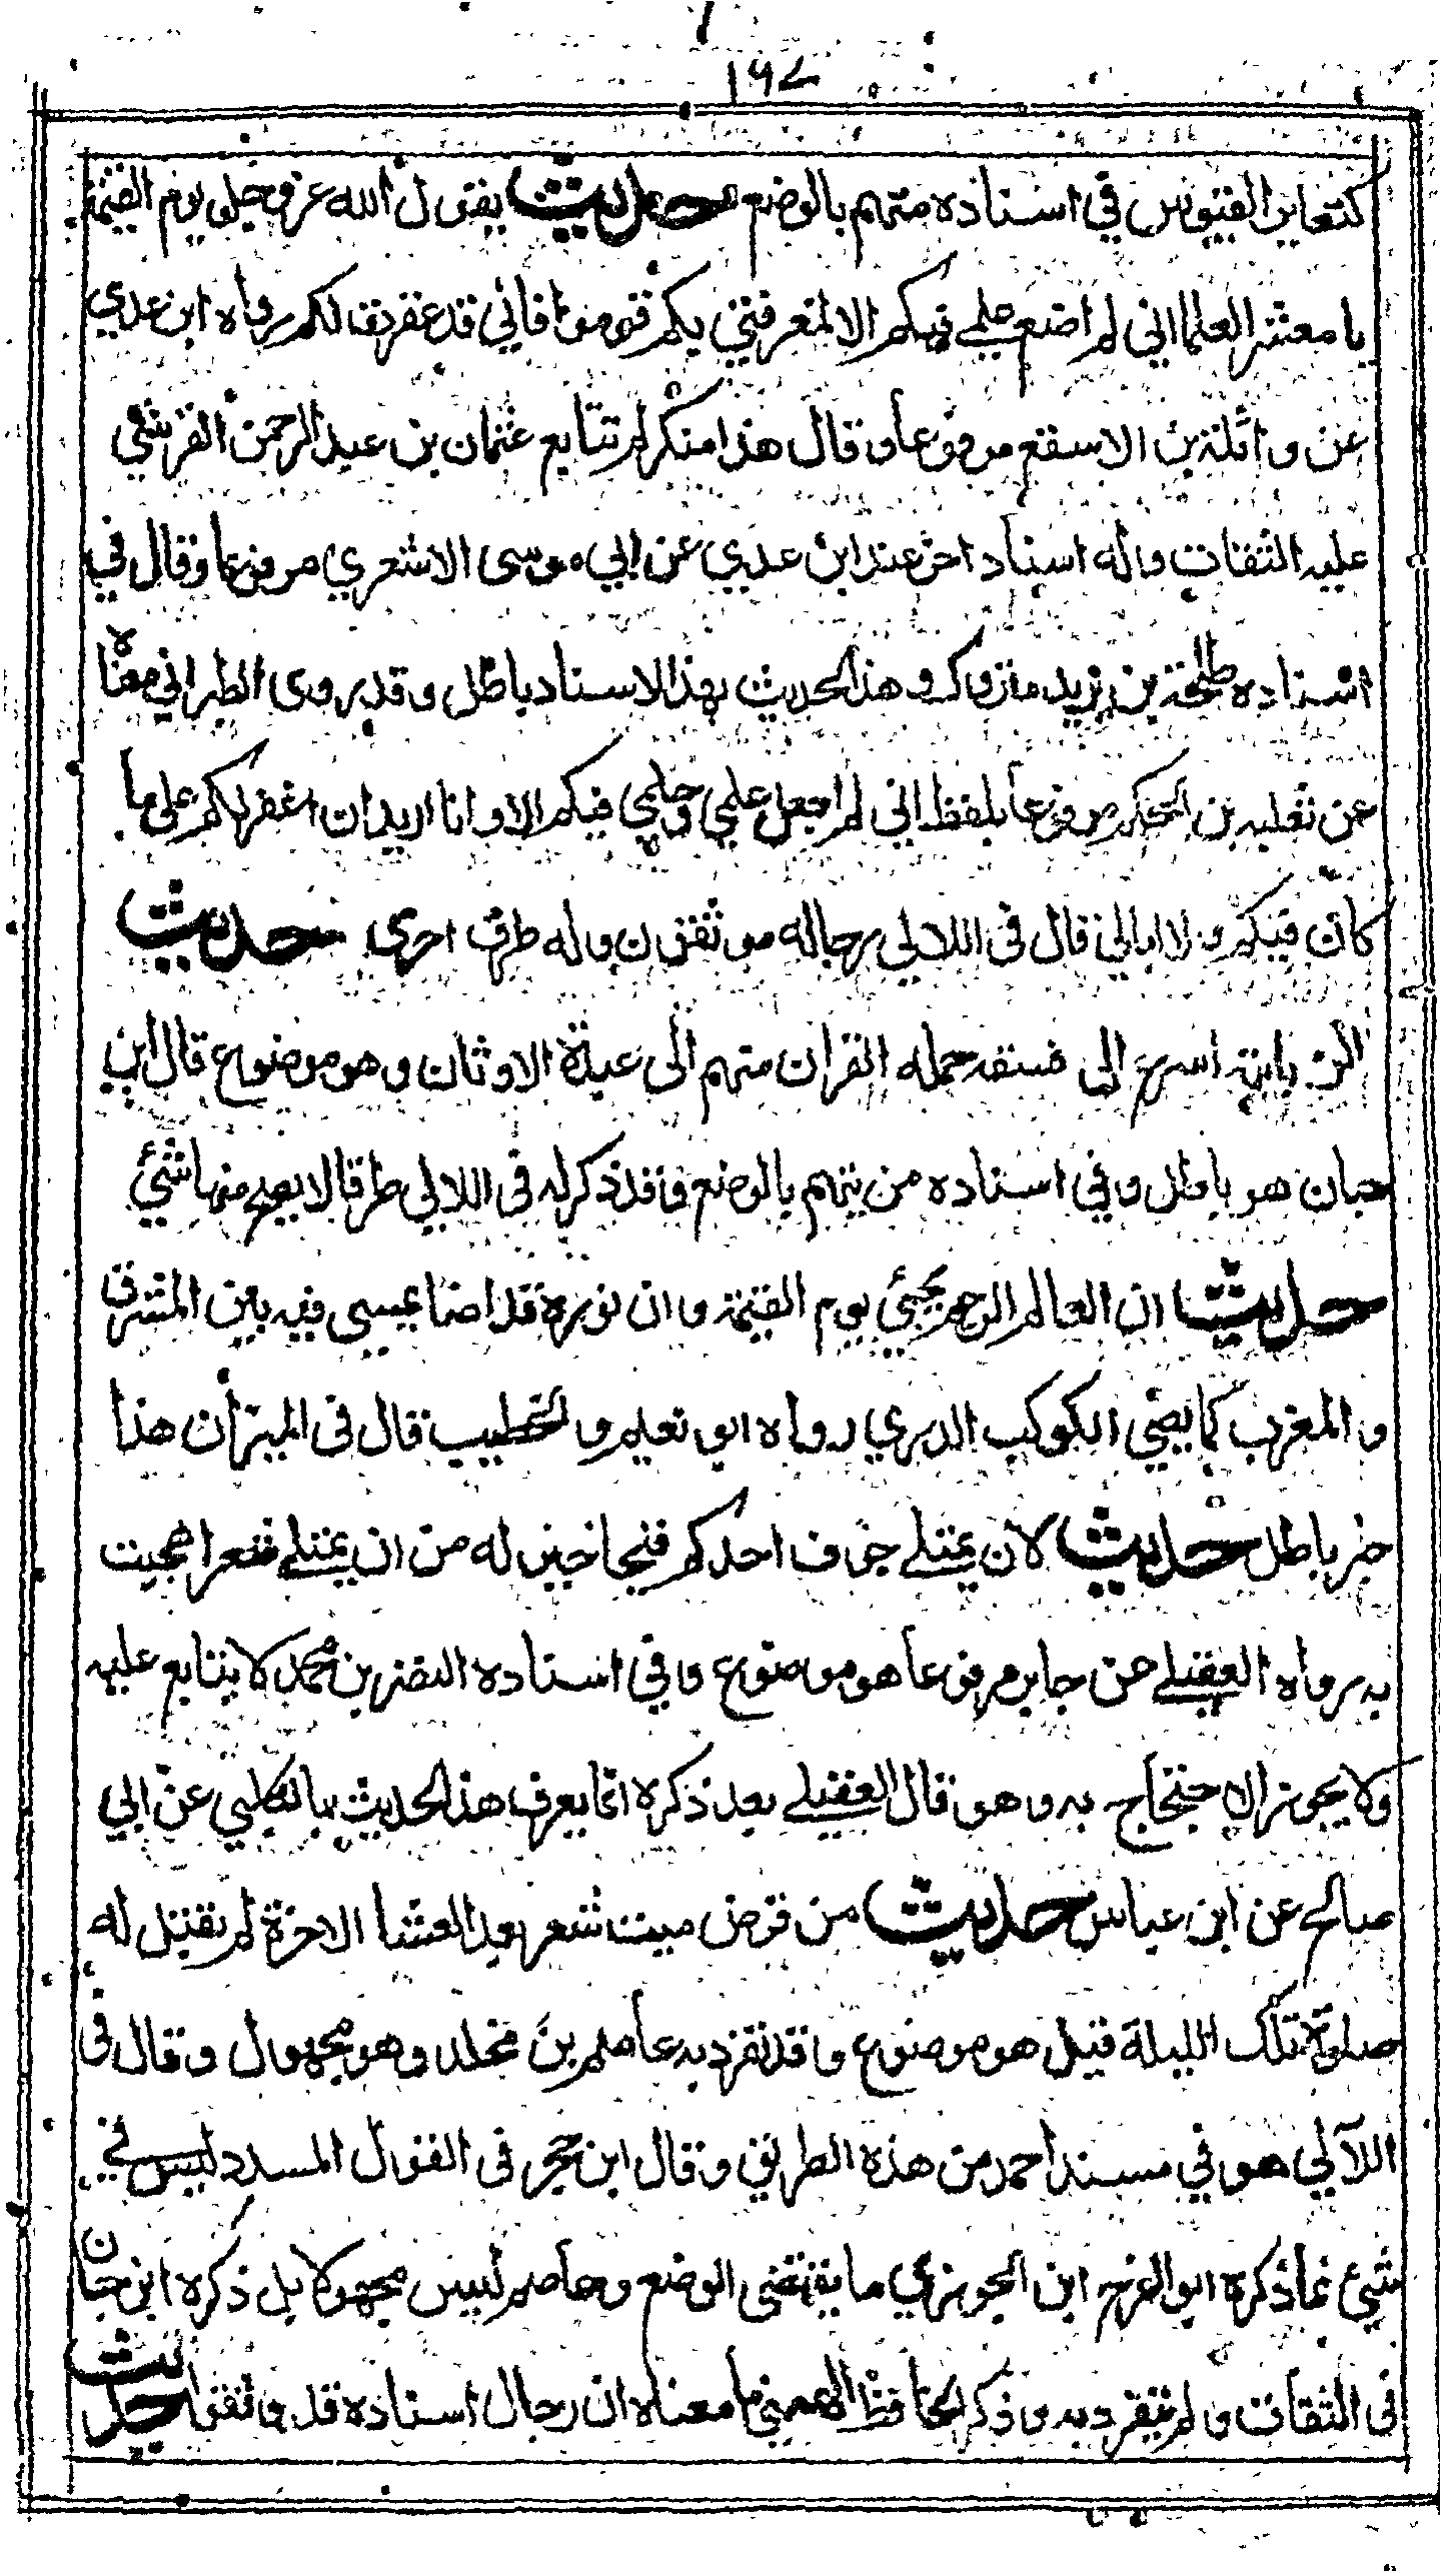 ١٩٧
كتغاير التيوس في اسناده متهم بالوضع حديث يقول الله عز وجل يوم القيمة
يا معشر العلما اني لم اضع علمي فيكم الا لمعرفتي بكم قوموا فاني قد غفرت لكم رواه ابن عدي
عن واثلة بن الاسقع مرفوعا وقال هذا منكر لم يتابع عثمان بن عبد الرحمن القرشي
عليه الثقات وله اسناد اخر عند ابن عدي عن ابي موسى الاشعري مرفوعا وقال في
اسناده طلحة بن يزيد متروك وهذا الحديث بهذا الاسناد باطل وقد روى الطبراني معناه
عن ثعلبه بن الحكم مرفوعا بلفظ اني لم اجعل علمي وحلمي فيكم الا وانا اريد ان اغفر لكم على ما
كان فيكم ولا ابالي قال في اللالي رجاله موثقون وله طرق اخرى حديث
الزبانية اسرع الى فسقه حمله القران منهم الى عبدة الاوثان وهو موضوع قال ابن
حبان هو باطل وفي اسناده من يتهم بالوضع وقد ذكر له في اللالي طرقا لا يصح منها شئ
حديث ان العالم الرحيم يجيئ يوم القيمة وان نوره قد اضا يمسي فيه بين المشرق
والمغرب كما يضي الكوكب الدري رواه ابو نعيم والخطيب قال في الميزان هذا
خبر باطل حديث لان يمتلي جوف احدكم قيحا خير له من ان يمتلي شعرا هجيت
به رواه العقيلي عن جابر مرفوعا هو موضوع وفي اسناده النضر بن محمد لا يتابع عليه
ولا يجوز الاحتجاج به وهو قال العقيلي بعد ذكره انما يعرف هذا الحديث بالكلبي عن ابي
صالح عن ابن عباس حديث من قرض بيت شعر بعد العشا الاخرة لم تقبل له
صلوة تلك الليلة قيل هو موضوع وقد تفرد به عاصم بن مخلد وهو مجهول وقال في
اللآلي هو في مسند احمد من هذه الطريق وقال ابن حجر في القول المسدد ليس في
شيئ مما ذكره ابو الفرج ابن الجوزي ما يقتضى الوضع وعاصم ليس مجهولا بل ذكره ابن حبان
في الثقات ولم ينفرد به وذكر الحافظ الهيثمي ما معناه ان رجال اسناده قد وثقوا حديث